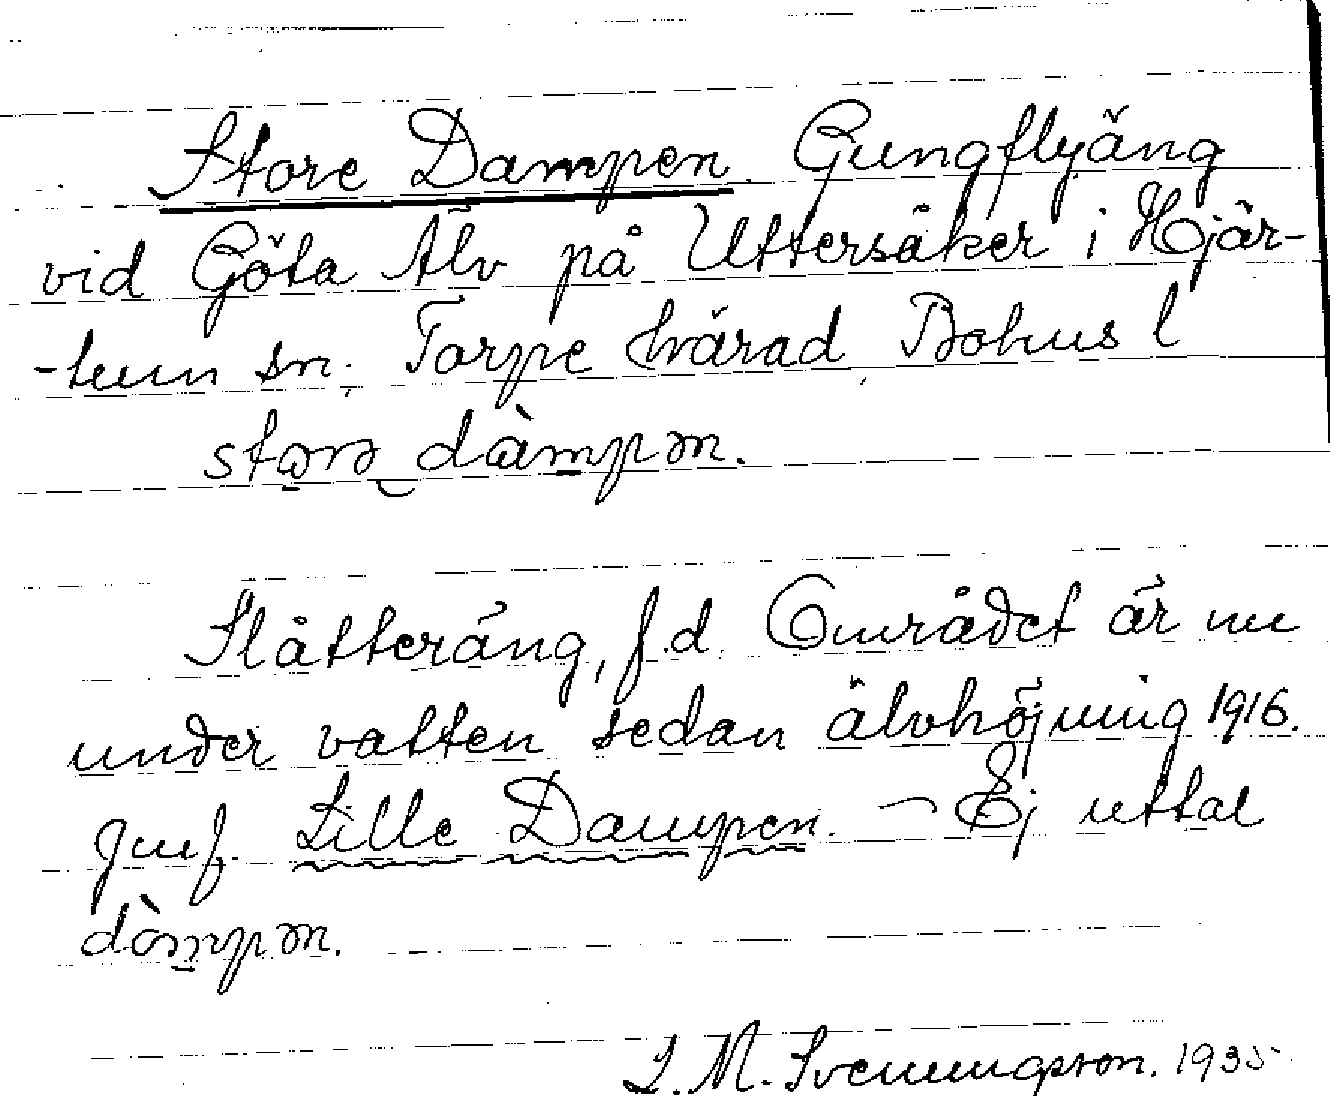 Store Dampen. Gungflyäng
vid Göta Älv på Uttersåker i Hjär-
-tum sn. Torpe härad, Bohus l
storə dàmpən.
Slåtteräng, f.d. Området är nu
under vatten sedan älvhöjning 1916.
Jmf. Lille Dampen. - Ej uttal
dòmpən.
L. M. Svenungsson. 1935